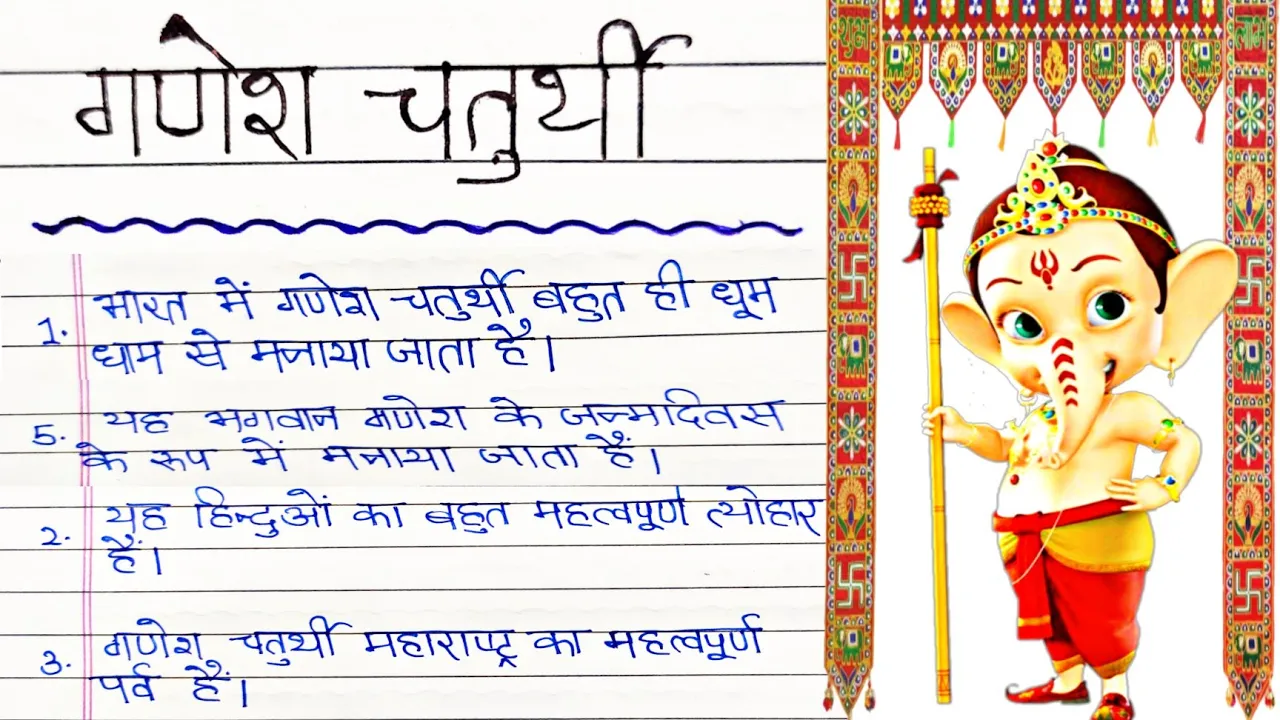 गणेश चतुर्थी
1. भारत में गणेश चतुर्थी बहुत ही धूम
धाम से मनाया जाता है।
5. यह भगवान गणेश के जन्मदिवस
के रूप में मनाया जाता हैं।
2. यह हिन्दुओं का बहुत महत्वपूर्ण त्योहार
हैं।
3. गणेश चतुर्थी महाराष्ट्र का महत्वपूर्ण
पर्व हैं।
शुभ
लाभ